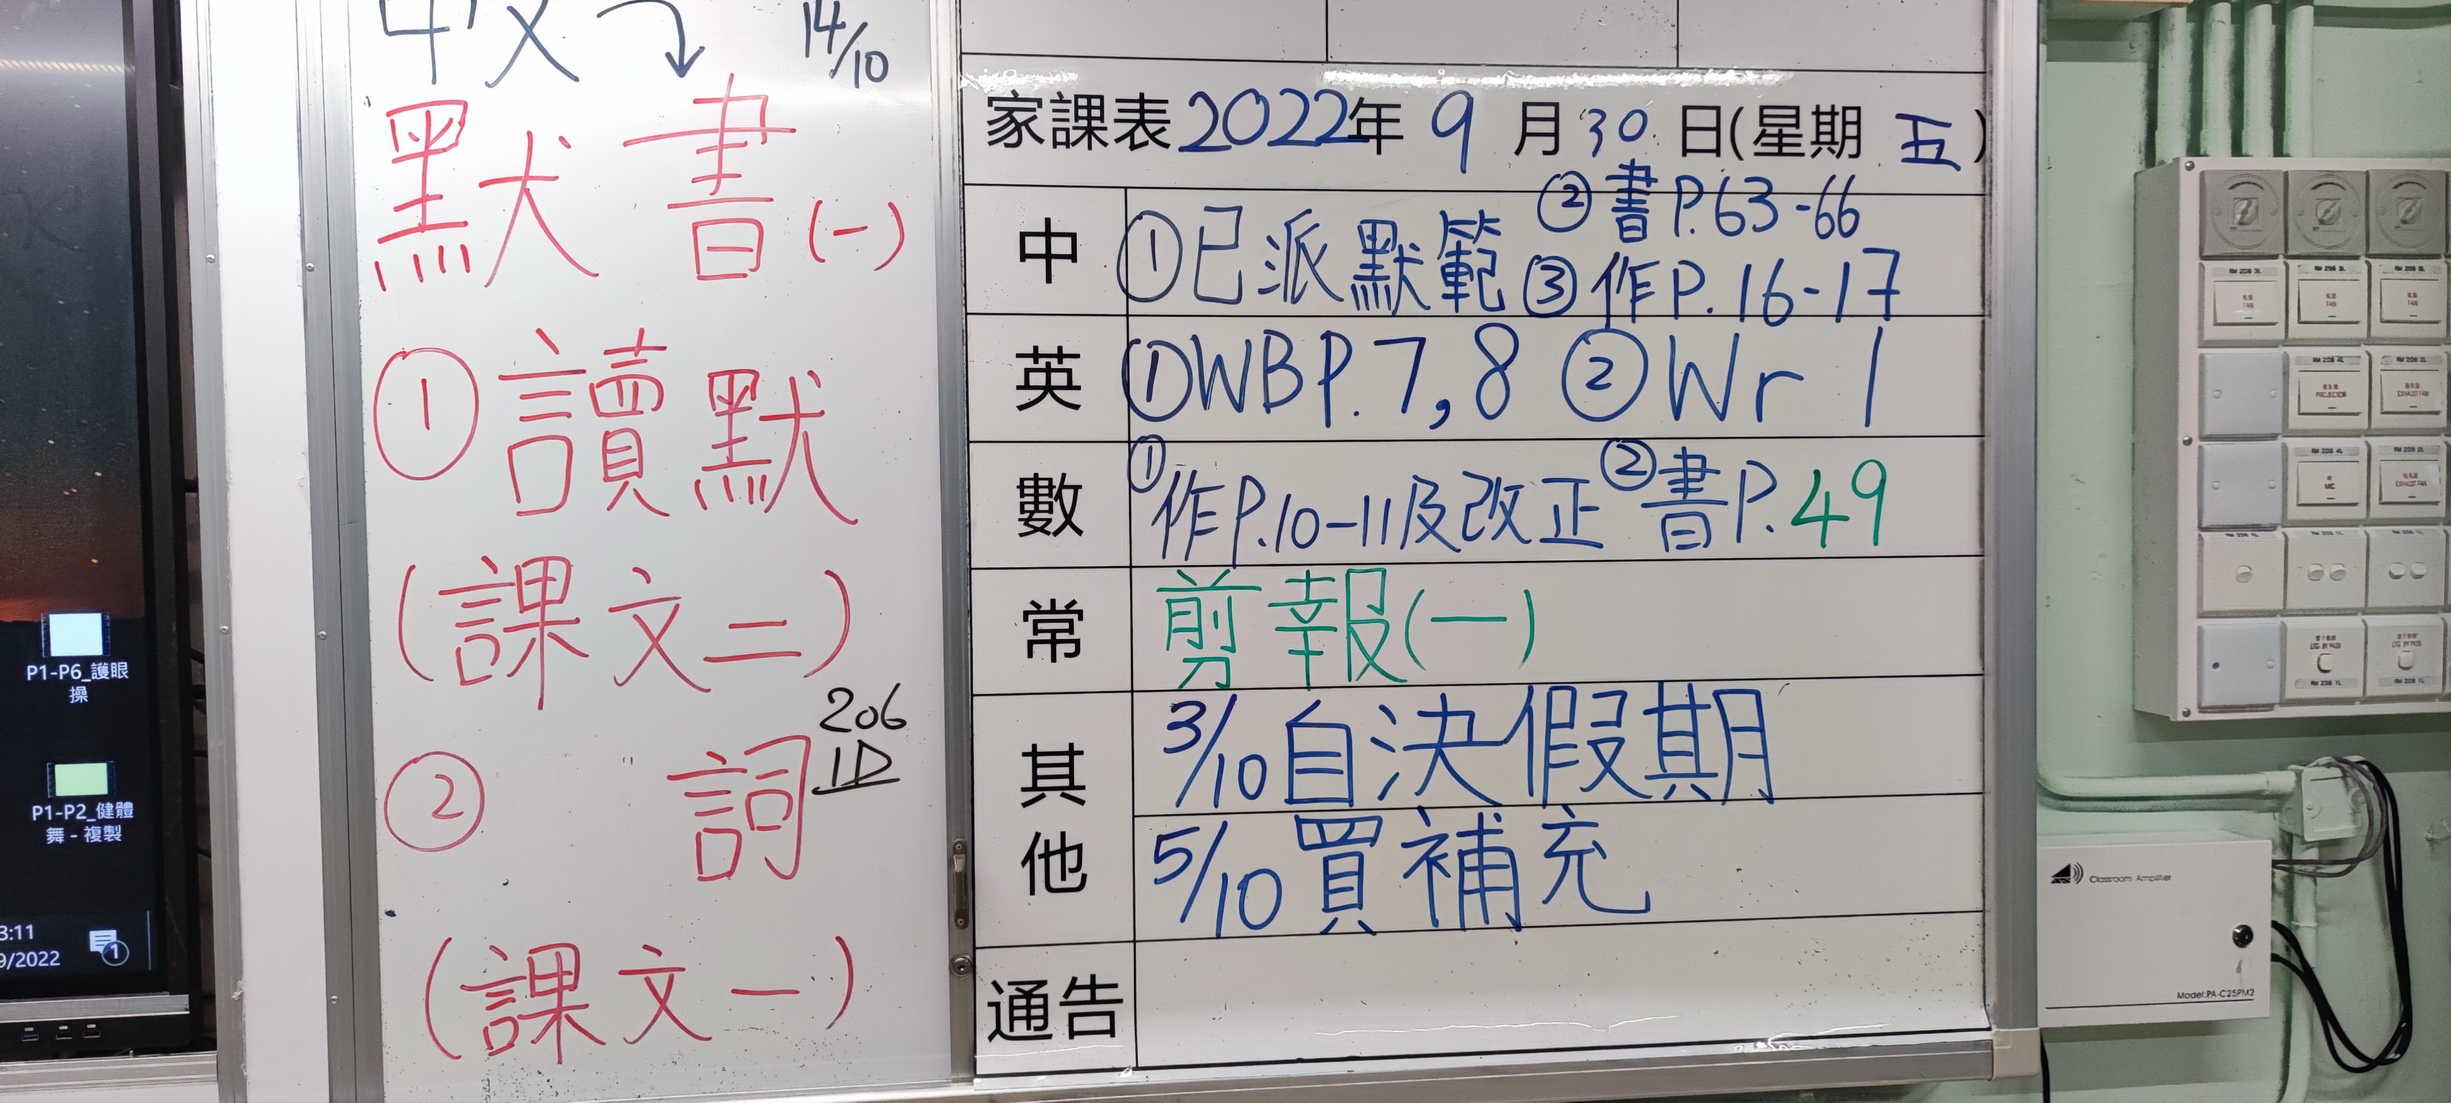 中文 14/10
默書(一)
①讀默
(課文二)
② 詞
206
1D
(課文一)
家課表2022年9月30日(星期五)
中 ①已派默範 ②書P.63-66
③作P.16-17
英 ①WB P.7,8 ②Wr 1
數 ①作P.10-11及改正 ②書P.49
常 剪報(一)
其他 3/10自決假期
5/10買補充
通告
P1-P6_護眼
操
P1-P2_健體
舞 - 複製
3:11
9/2022
1
Classroom Amplifier
Model:PA-C25PM2